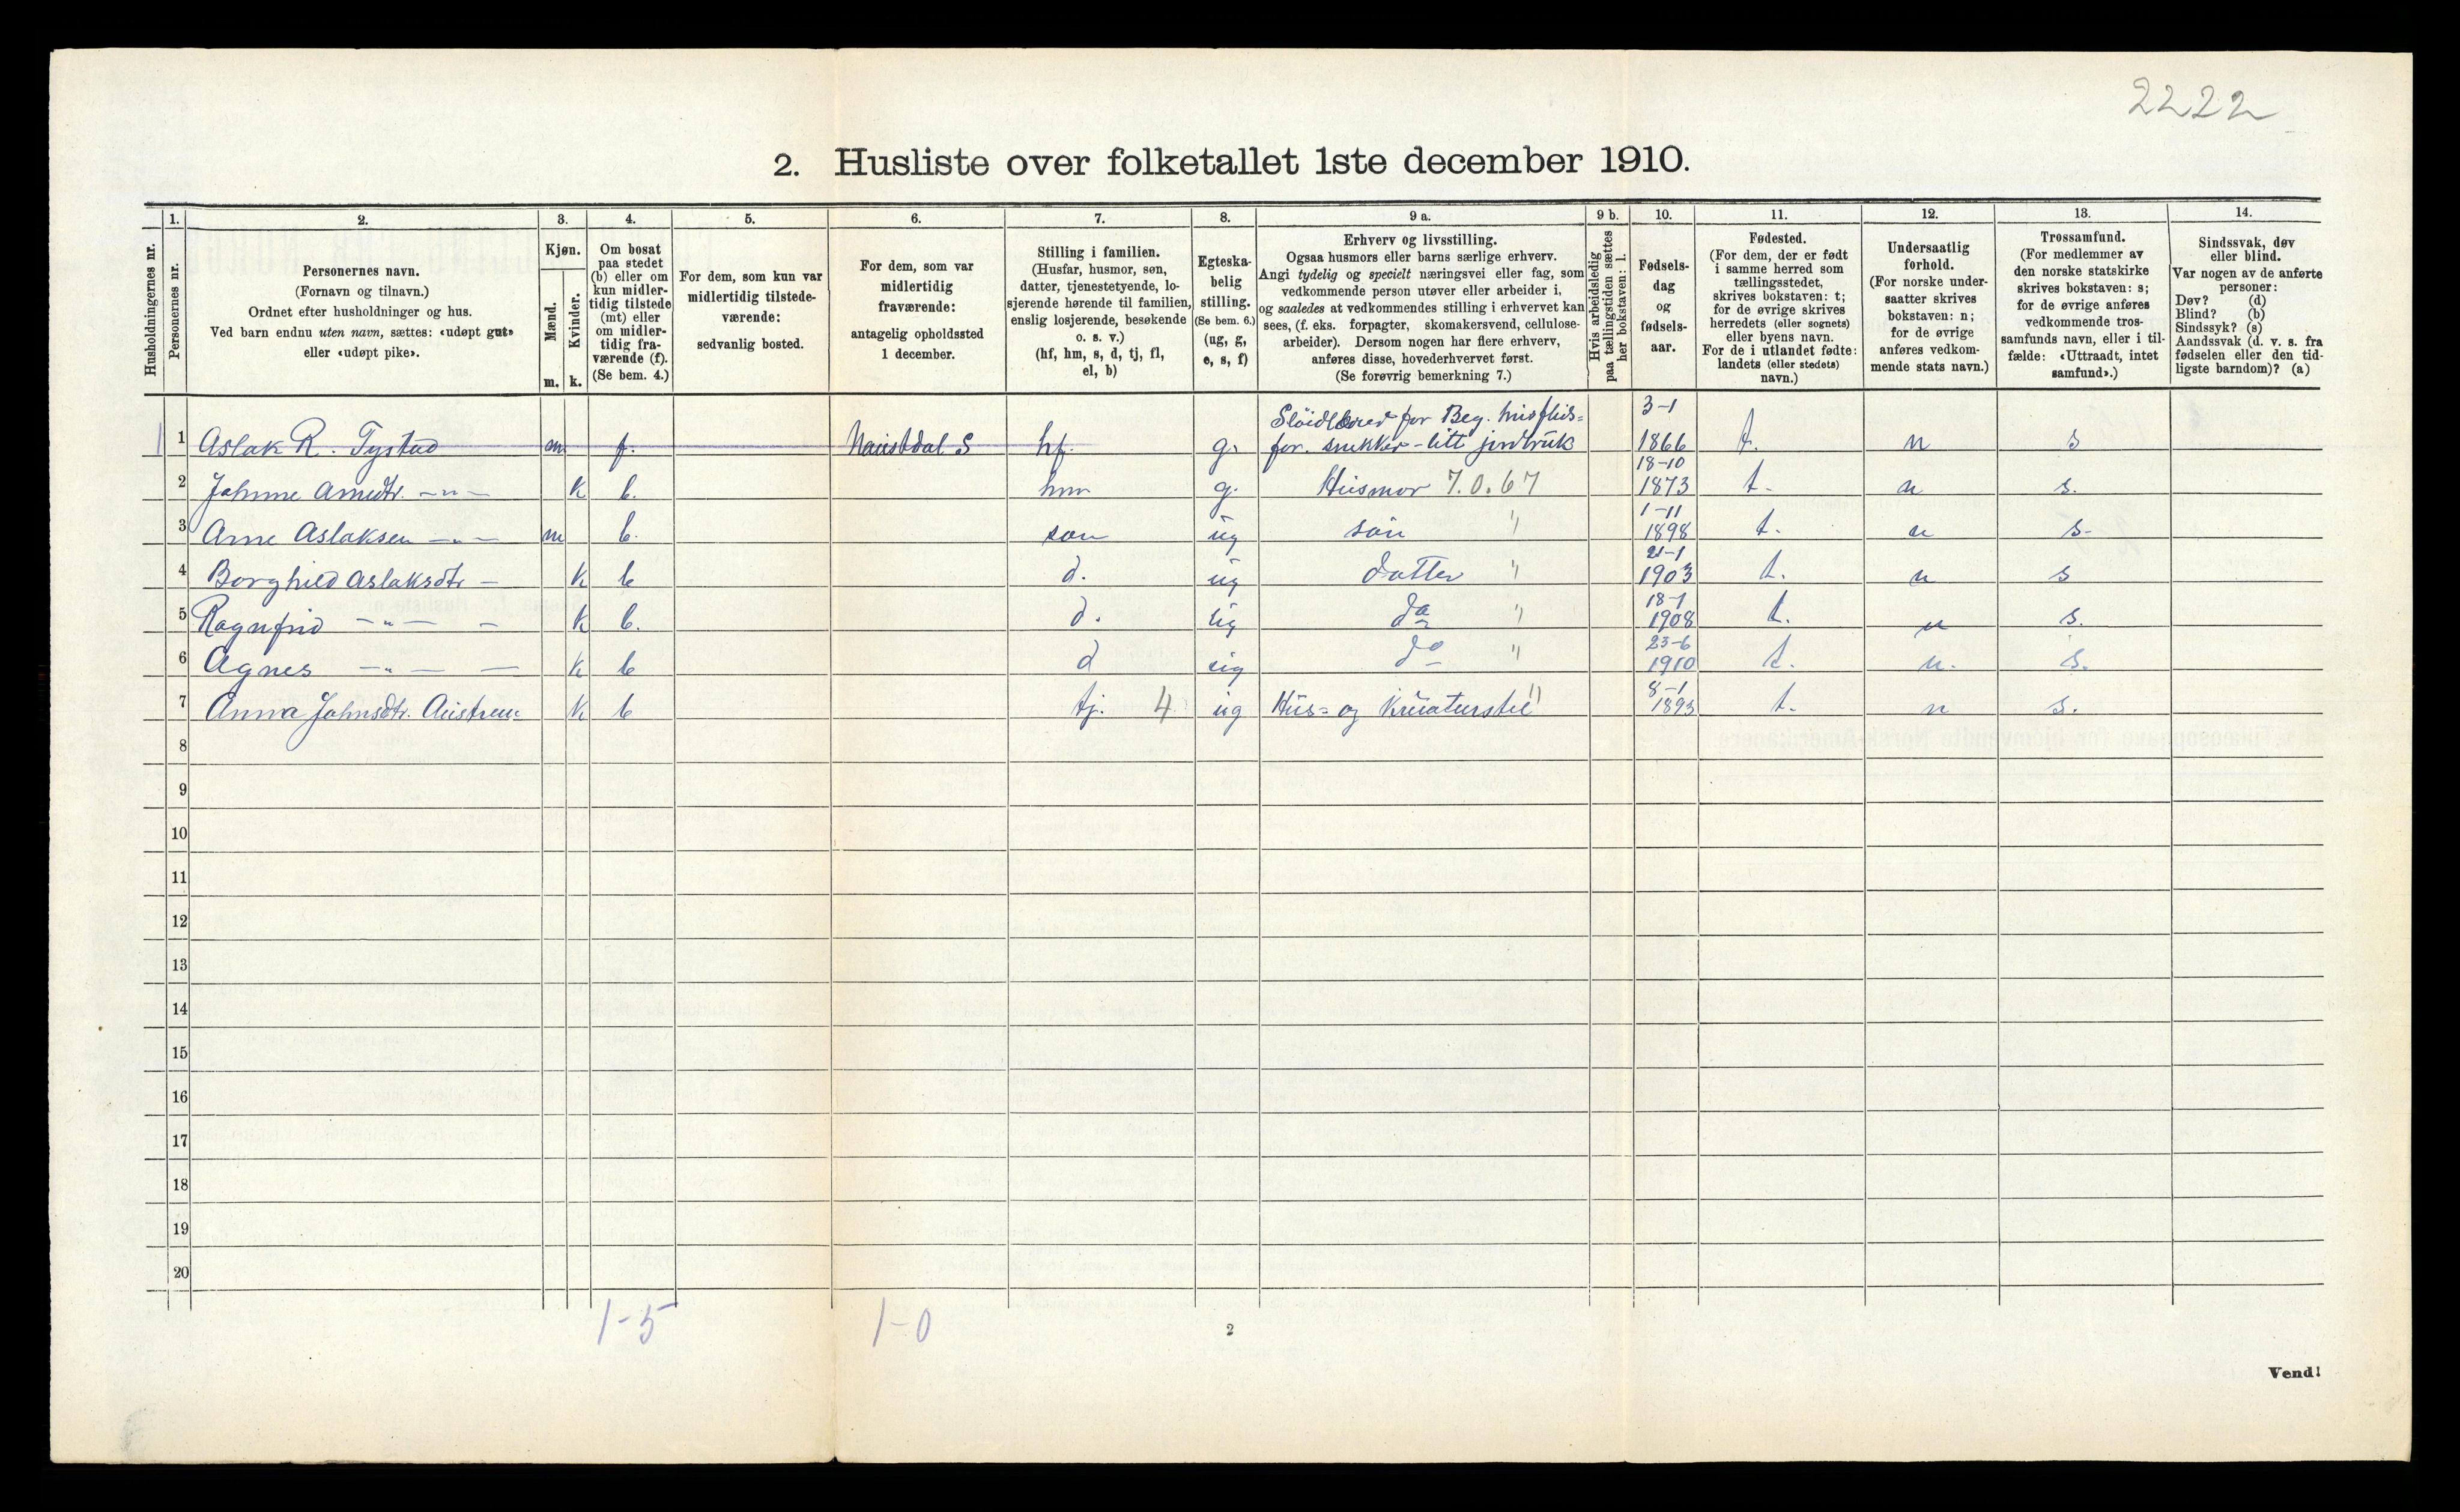 2222
2. Husliste over folketallet 1ste december 1910.
Husholdningernes nr.
1.
Personernes nr.
2.
Personernes navn.
(Fornavn og tilnavn.)
Ordnet efter husholdninger og hus.
Ved barn endnu uten navn, sættes: «udøpt gut»
eller «udøpt pike».
3.
Kjøn.
Mænd.
Kvinder.
m.
k.
4.
Om bosat
paa stedet
(b) eller om
kun midler-
tidig tilstede
(mt) eller
om midler-
tidig fra-
værende (f).
(Se bem. 4.)
5.
For dem, som kun var
midlertidig tilstede-
værende:
sedvanlig bosted.
6.
For dem, som var
midlertidig
fraværende:
antagelig opholdssted
1 december.
7.
Stilling i familien.
(Husfar, husmor, søn,
datter, tjenestetyende, lo-
sjerende hørende til familien,
enslig losjerende, besøkende
o. s. v.)
(hf, hm, s, d, tj, fl,
el, b)
8.
Egteska-
belig
stilling.
(Se bem. 6.)
(ug, g,
e, s, f)
9 a.
Erhverv og livsstilling.
Ogsaa husmors eller barns særlige erhverv.
Angi tydelig og specielt næringsvei eller fag, som
vedkommende person utøver eller arbeider i,
og saaledes at vedkommendes stilling i erhvervet kan
sees, (f. eks. forpagter, skomakersvend, cellulose-
arbeider). Dersom nogen har flere erhverv,
anføres disse, hovederhvervet først.
(Se forøvrig bemerkning 7.)
9 b.
Hvis arbeidsledig
paa tællingstiden sættes
her bokstaven: l.
10.
Fødsels-
dag
og
fødsels-
aar.
11.
Fødested.
(For dem, der er født
i samme herred som
tællingsstedet,
skrives bokstaven: t;
for de øvrige skrives
herredets (eller sognets)
eller byens navn.
For de i utlandet fødte:
landets (eller stedets)
navn.)
12.
Undersaatlig
forhold.
(For norske under-
saatter skrives
bokstaven: n;
for de øvrige
anføres vedkom-
mende stats navn.)
13.
Trossamfund.
(For medlemmer av
den norske statskirke
skrives bokstaven: s;
for de øvrige anføres
vedkommende tros-
samfunds navn, eller i til-
fælde: «Uttraadt, intet
samfund».)
14.
Sindssvak, døv
eller blind.
Var nogen av de anførte
personer:
Døv? (d)
Blind? (b)
Sindssyk? (s)
Aandssvak (d. v. s. fra
fødselen eller den tid-
ligste barndom)? (a)
1 1 Aslak R. Tystad m f. Naustdal S hf. g. for. snekker - litt jordbruk 3-1 1866 t. n s
2 Johnne Arnedtr. -"- k b. hm g. Husmor 7.0.67 18-10 1873 t. n s.
3 Arne Aslaksen -"- m b. søn ug søn " 1-11 1898 t. n s.
4 Borghild Aslaksdtr - k b d. ug datter " 21-1 1903 t. n s
5 Ragnfrid -"- - k b. d. ug do " 18-1 1908 t. n s.
6 Agnes -"- - k b d ug do " 23-6 1910 t. n. s.
7 Anna Johnsdtr. k b tj. 4 ug Hus= og Kreaturstel " 8-1 1893 t. n s.
8
9
10
11
12
13
14
15
16
17
18
19
20
1-5
1-0
2
Vend!